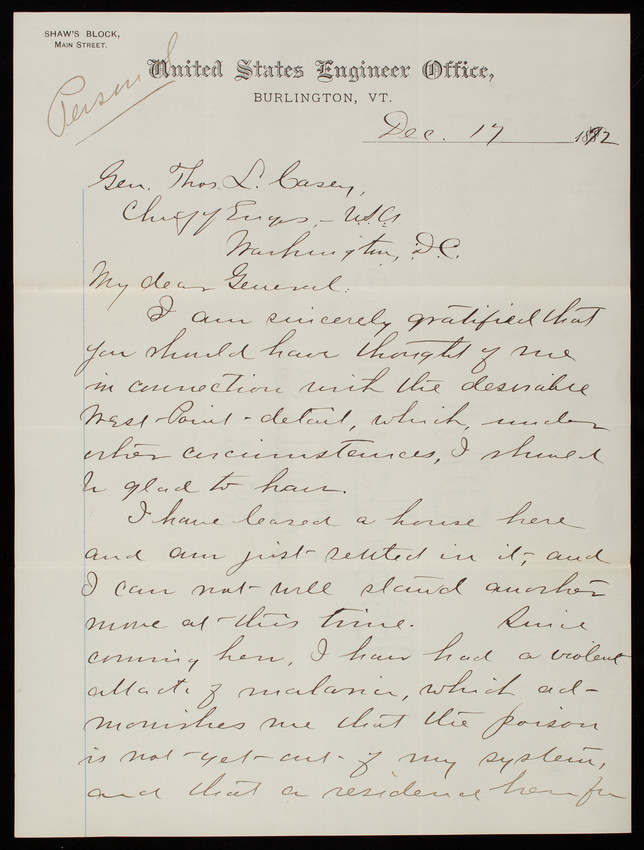 SHAW'S BLOCK,
MAIN STREET.
Personal
United States Engineer Office,
BURLINGTON, VT.
Dec. 17 1892
Gen. Thos. L. Casey,
Chief of Engrs, - U.S.A
Washington, D.C.
My dear General:
I am sincerely gratified that
you should have thought of me
in connection with the desirable
West-Point-detail, which, under
other circumstances, I should
be glad to have.
I have leased a house here
and am just settled in it, and
I can not well stand another
move at this time. Since
coming here, I have had a violent
attack of malaria, which ad-
monishes me that the poison
is not-yet-out-of my system,
and that a residence here for